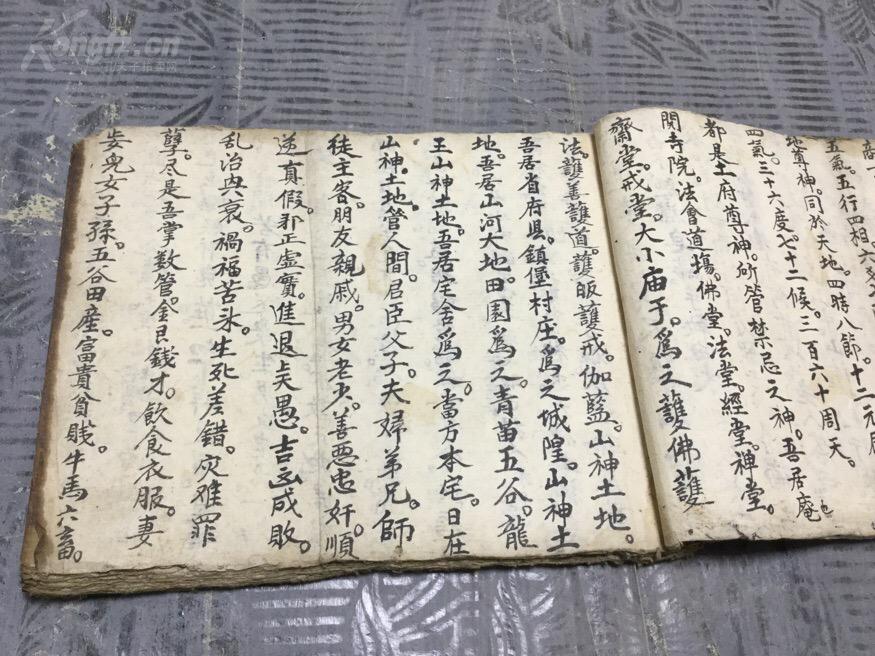 五氣。五行四相。六
地眞神。同於天地。四時八節。十二元辰
四氣。三十六度。七十二候。三百六十周天。
都是土府尊神。所管禁忌之神。吾居庵
閔寺院。法會道場。佛堂。法堂。經堂。禅堂。
齋堂。戒堂。大小庙于。爲之護佛護
法。護善護道。護皈護戒。伽藍。山神土地。
吾居省府県。鎮堡村庄。爲之城隍。山神土
地。吾居山河大地。田園爲之。青苗五谷。龍
王山神土地。吾居宅舍爲之。當方本宅。日在
山神土地。管人間。君臣父子。夫婦弟兄。師
徒主客。朋友親戚。男女老少。善悪忠奸。順
逆真假。邪正虛實。進退贤愚。吉凶成敗。
乱治兴衰。禍福苦永。生死差錯。灾难罪
孽。尽是吾掌数管。金艮錢才。飲食衣服。妻
妾兒女子孫。五谷田産。富貴貧賤。牛馬六畜。
Kongfz.cn